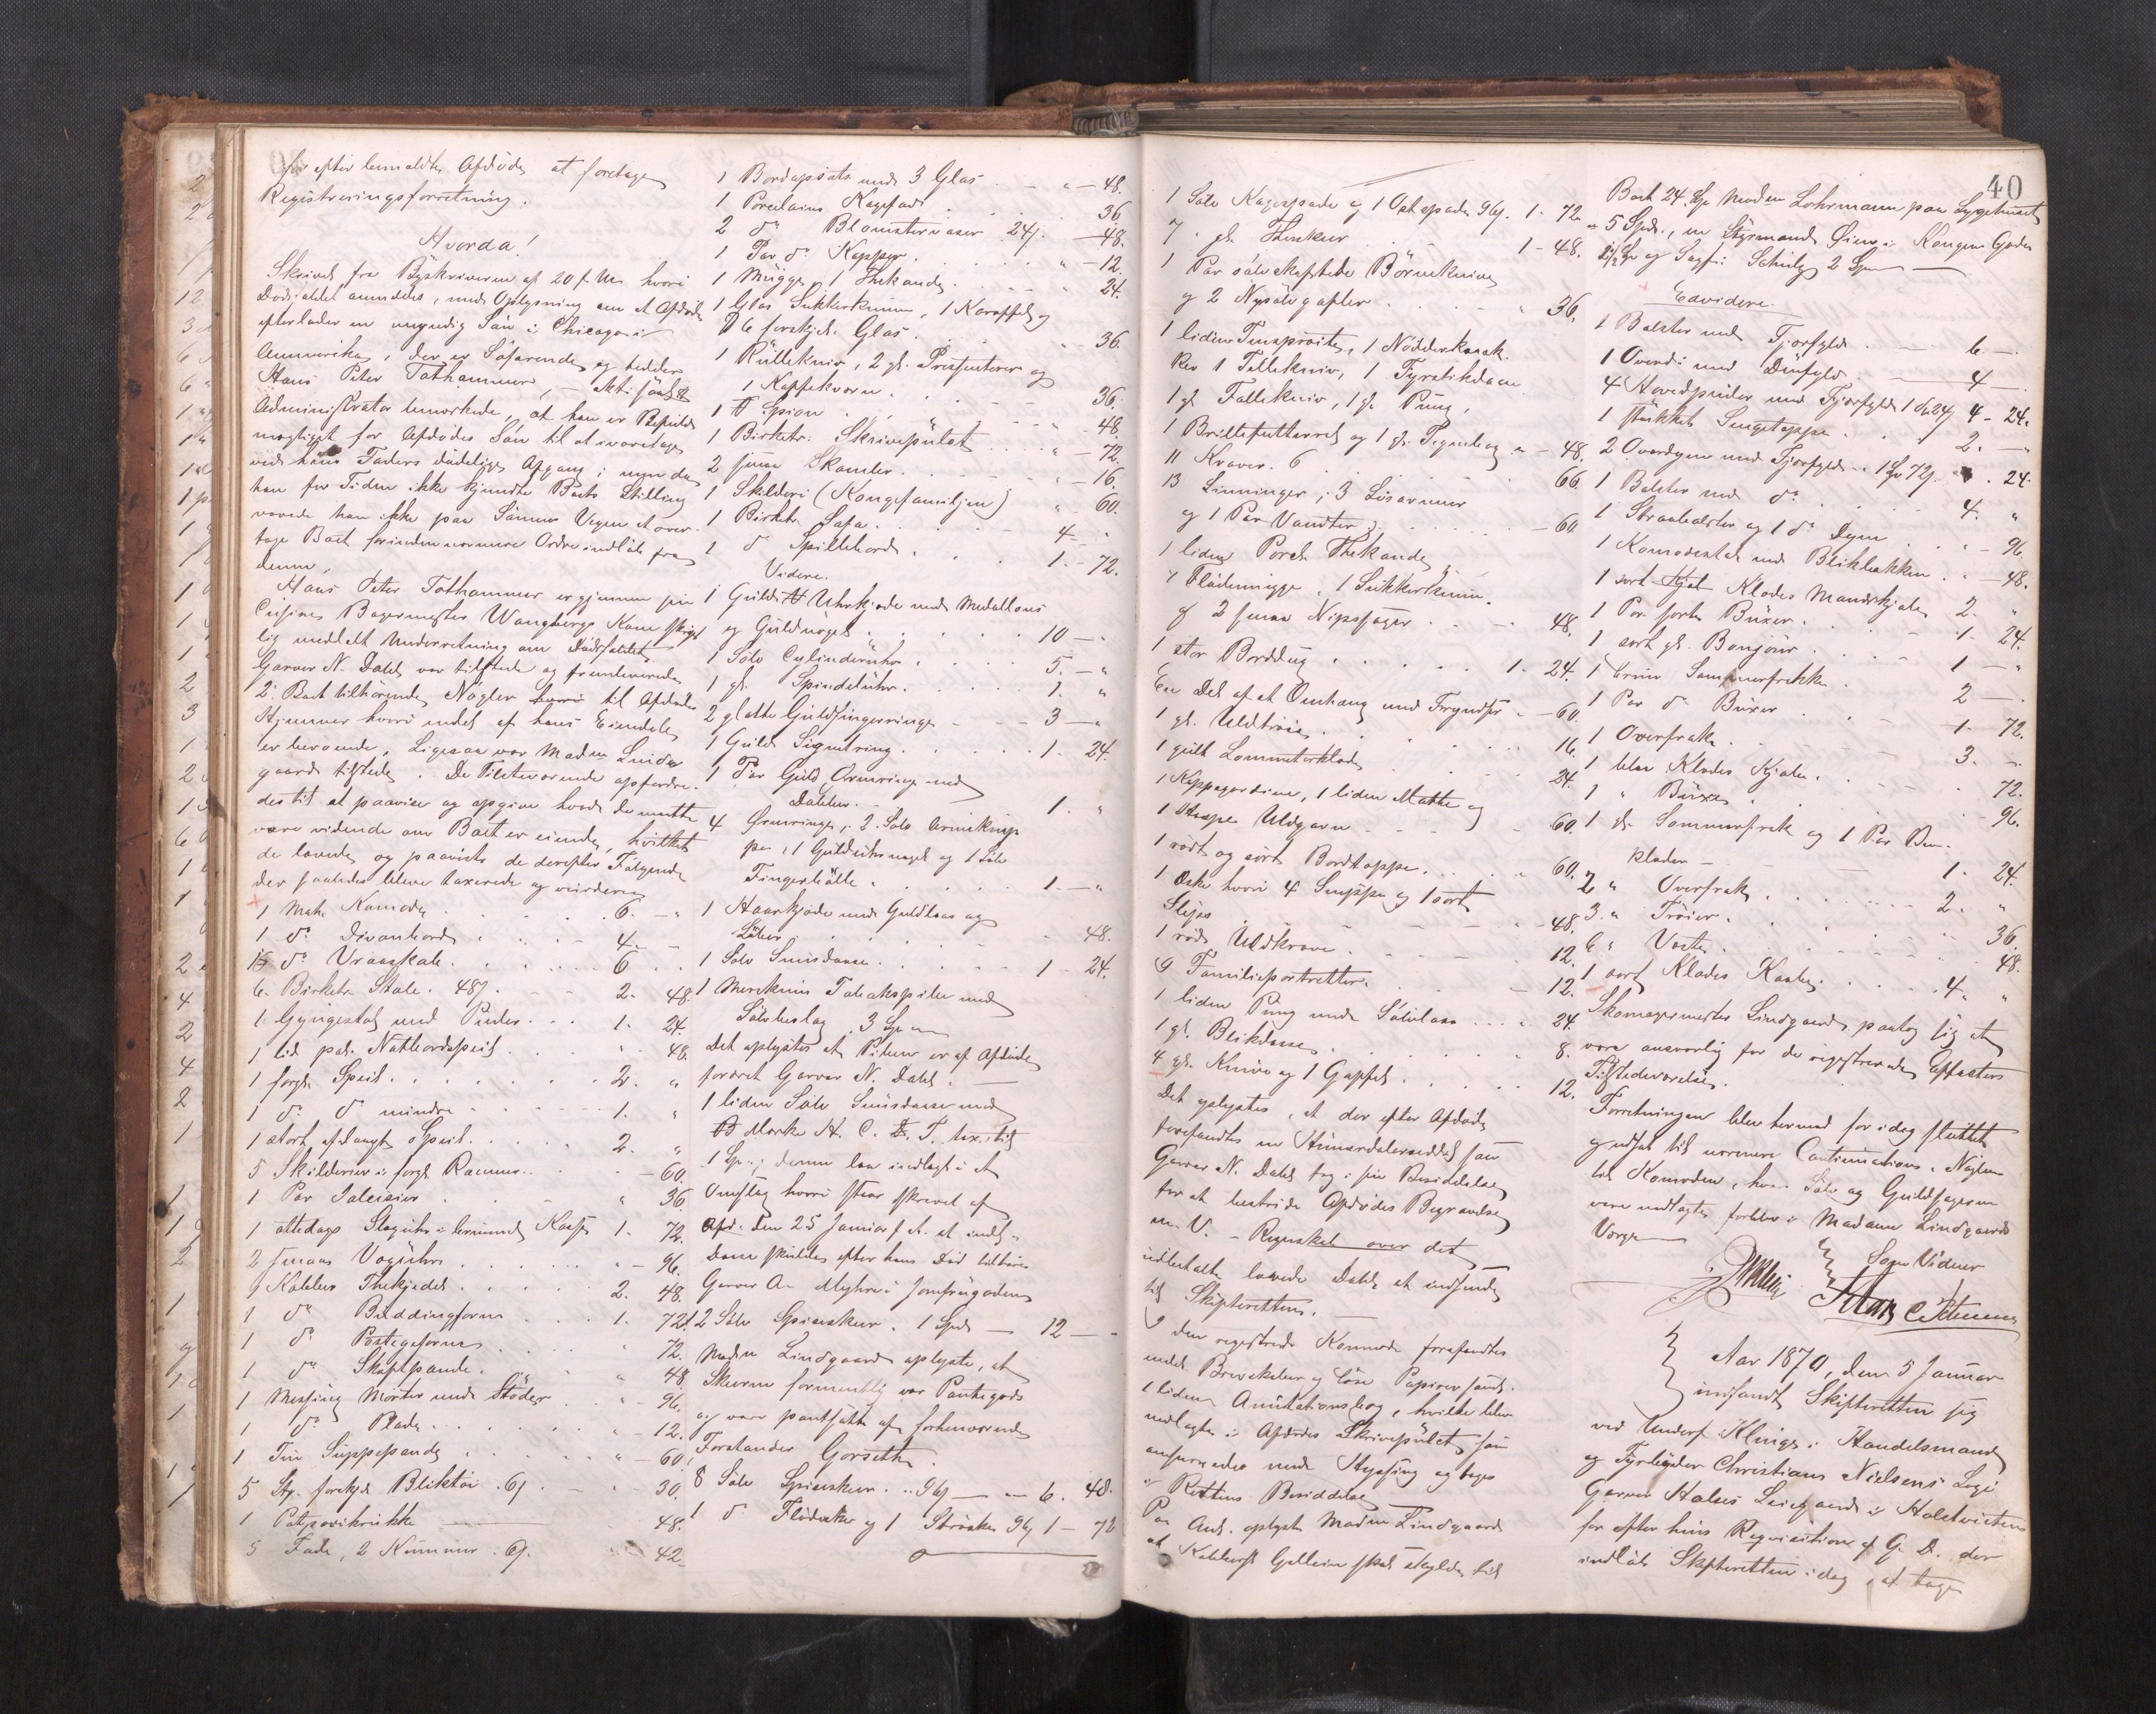 for efter bemeldte Afdøde at foretage
Registreringsforretning.
Hvorda!
Skrivet fra Byskriveren af 20 f. M. hvori
Dødsfaldet anmeldes, med Oplysning om at Afdøde
efterlader en umyndig Søn i Chicago i
Ammerika, der er Søfarende og hedder
Hans Peter Tothammer,
Administrator bemærkede, at han er Befuld-
mægtiget for Afdødes Søn til at ivaretage
ved hans Faders dødelige Afgang; men da
han for Tiden ikke kjendte Boets Stilling
vovede han ikke paa Sønnens Vegne at over-
tage Boet forinden nærmere Ordre indløb fra
denne.
Hans Peter Tothammer er gjennem sin
Cusine Bagermester Wangbergs Kone skrift-
lig meddelt Underretning om Dødsfaldet.
Garver N. Dahl var tilstede og fremleverede
2 Boet tilhørende Nøgler til Afdødes
Gjemmer hvori endel af hans Eiendele
er beroende. Ligesaa var Madm Lind-
gaard tilstede. De Tilstedeværende opfordre-
des til at paavise og opgive hvad de maatte
være vidende om Boet er eiende, hvilket
de lovede og paaviste de derefter Følgende
der saaledes bleve taxerede og vurderede
1 Mah. Komode . . . 6. — "
1 do Divanbord . . . 4. —
1 do Vraaskab . . . 6
6 Birketr. Stole. 48ȷ. . . 2. 48
1 Gyngestol med Puder . . . 1. 24.
1 lid. pol. Natbordspeil . . . 48.
1 forgt. Speil . . . 2. "
1 do do mindre . . . 1. "
1 stort aflangt Speil . . . 2. "
5 Skilderier i forgt. Rammer . . — 60.
1 Par Talerkener . . . " 36.
1 ottedags Slaguhr i brunmalt Kasse 1. 72.
2 smaa Væguhre . . . " — 96.
9 Kobber Thekjedel . . . 2. 48.
1 do Buddingform . . . 1. 72
1 do Posteiform . . . 72.
1 do Skaftpande . . . " 48.
1 Messing Morter med Støder . . . " 96.
1 do Plade . . . " — 12.
1 Tin Suppepande . . . " — 60.
5 St. forskjel. Bliktøi . 6ȷ . — — 30.
1 Potpourikrukke — 48.
5 Fade, 2 Kummer . 6ȷ. 42
1 Bordopsats med 3 Glas . — " — 48.
1 Porcelains Kagefad . . . 36
2 do Blomstervaser 24ȷ. — 48.
1 Par do Kopper . . . " — 12.
1 Mugge, 1 Thekande . . . " 24.
1 Glas Sukkerkumme, 1 Karaffel og
6 forskjel. Glas . . . " — 36.
1 Rullekniv, 2 gl. Præsenterer og
1 Kaffekværn . . . 36.
1 Spion . . . — 48
1 Birketr. Skrivepulat . . . " — 72.
2 smaa Skamler . . . " — 16.
1 Skilderi (Kongefamiljen) . " 60.
1 Birketr. Sofa . . . 4. —
1 do Spillebord . . . 1. — 72.
Videre.
1 Guld Uhrkjæde med Medallons
og Guldnøgel . . . 10 — "
1 Sølv Cylinderuhr . . . 5. — "
1 gl. Spindeluhr . . . 1. "
2 glatte Guldfingerringe . . . 3 — "
1 Guld Signetring . . . 1. 24.
1 Par Guld Ørenringe med
Dobber . . . 1. "
4 Ørenringe, 2 Sølv Armknap-
per, 1 Gulduhrnøgel og 1 Sølv
Fingerbølle . . . 1. — "
1 Haarkjæde med Guldlaas og
Løber . . . 48.
1 Sølv Snusdaase . . . 1 — 24.
1 Merskums Tobakspibe med
Sølvbeslag . 3 Sp
Det oplystes at Piben er af Afdøde
foræret Garver N. Dahl. —
1 liden Sølv Snusdaase med
Mærke H. C. T. tax. til
1 Sp.; denne laa indlagt i et
Omslag hvori staar skrevet af
Afd. den 25 Januar f. A. at
Daase skulde efter hans Død tilhøre
Garver A. Myhre i Jomfrugaden
12 Sølv Spiseskeer. 1 Spd — 12 — "
Madm Lindgaard oplyste, at
Skeerne formentlig var Pantegods
og vare pantsatte af forhenværende
Forstander Gorseth.
8 Sølv Spiseskeer . . 96ȷ — — 6. 48.
1 do Flødeske og 1 Strøske 96ȷ 1 — 72
40
1 Sølv Kagespade og 1 Ostspade 96ȷ. 1. 72.
7 gl. Theskeer . . . 1 — 48.
1 Par sølvskaftede Børneknive
og 2 Nysølvgafler . . . " 36.
1 liden Tinsprøite, 1 Nøddeknæk-
ker 1 Tællekniv, 1 Fyrstikdaase
1 gl. Follekniv, 1 gl. Pung,
1 Brillefutteral og 1 gl. Tegnebog " — 48.
11 Kraver. 6 . . . 66.
13 Linninger, 3 Løsærmer
og 1 Par Vanter . . . — 60
1 liden Porcl. Thekande,
1 Flødemugge, 1 Sukkerkumme
og 2 smaa Nipssager . . . 48.
1 stor Borddug . . . 1. 24.
En Del af et Omhæng med Fryndser . — 60.
1 gl. Uldtrøie . . . 16.
1 gult Lommetørklæde . . . 24.
1 Kappegardine, 1 liden Matte og
1 Uldgarn . . . " 60.
1 rødt og sort Bordteppe . . . " 60.
1 Æske hvori 4 og 1 sort
Sløjfe . . . 48.
1 rød Uldkrave . . . 12.
9 Familieportretter . . . — 12.
1 liden Pung med Sølvlaas . . . " 24.
1 gl. Blikdaase . . . " 8.
4 gl. Knive og 1 Gaffel . . . 12.
Det oplystes, at der efter Afdøde
forefandtes en Hunnerdalerseddel som
Garver N. Dahl tog i sin Besiddelse
for at bestride Afdødes Begravelse
m. V. — Regnskab over det
udbetalte lovede Dahl at indsende
til Skifteretten. —
I den registrerede Komode forefandtes
endel Brevskaber og løse Papirer samt
1 liden Annotationsbog, hvilke bleve
nedlagte i Afdødes Skrivepulat, som
og toges
i Rettens Besiddelse
Paa Anl. oplyste Madm Lindgaard
at Kobberst. Gulleiv skal skylde til
Boet 24 Sp. Madm Lohrmann paa Sygehuset
5 Spd., en Styrmand Øien i Kongens Gade
2½ Sp og Sagf. Schulz 2 Sp —
Endvidere.
1 Bolster med Fjærfyld . . — 6 —.
1 Overd. med Dunfyld . — 4
4 Hovedpuder med Fjærfyld 1 Sp 24ȷ 4 — 24.
1 stukket Sengeteppe . . . 2. — "
2 Overdyner med Fjærfyld . . 1 Sp 72ȷ . 24.
1 Bolster med do . . . 4. "
1 Straabolster og 1 do Dyne . . " — 96.
1 Komodestol med Blikbækken . " — 48.
1 sort Klædes Mandskjole 2. "
1 Par sorte Buxer . . . 1. 24.
1 sort gl. Bonjour . . . 1 — "
1 brun Sommerfrakke . . 2 —
1 Par do Buxer . . . 1. 72.
1 Overfrak . . . 3. —
1 blaa Klædes Kjole . . . 72.
1 " Buxer . . . 96.
1 gl. Sommerfrak og 1 Par Ben-
klæder — 1. 24.
2 " Overfrak . . . 2. "
3 " Trøier . . . 36.
6 " Veste . . . 48.
1 sort Klædes Kaabe . . . 4. "
Skomagermester Lindgaard paatog sig at
være ansvarlig for de registrerede Effecters
Tilstedeværelse.
Forretningen blev hermed for idag sluttet
og udsat til nærmere Continuation. Nøglen
til Komoden, hvori Sølv og Guldsagerne
vare nedlagte forblev i Madame Lindgaards
Værge —
Som Vidner
Aar 1870, den 5 Januar
indfandt Skifteretten sig
ved Underf. Klings i Handelsmand
og Fyrbøder Christian Nielsens Logi
Garver Halses Leiegaard i Holstveiten
for efter hans Reqvisition af G. D. der
indløb Skifteretten i dag, at tage